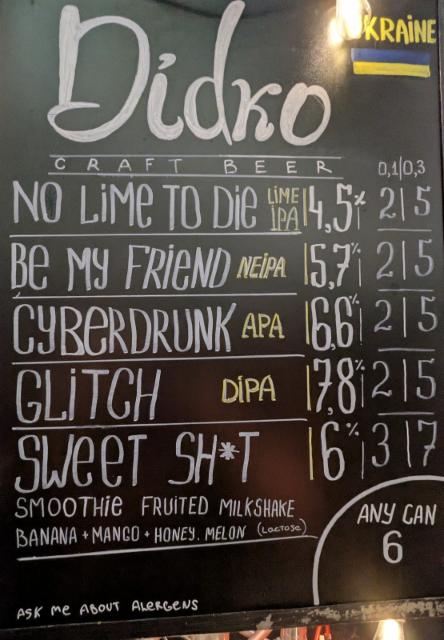 UKRAINE
Didko
CRAFT BEER 0,1|0,3
NO LiME TO Die LiME IPA 4,5% 2|5
Be MY FRiEND NEiPA 5,7% 2|5
CYBERDRUNK APA 6,6% 2|5
GLiTCH DiPA 7,8% 2|5
SWeeT SH*T 6% 3|7
SMOOTHie FRUiTED MiLKSHAKE
BANANA + MANGO + HONEY. MELON (Lactose)
ANY CAN
6
ASK ME ABOUT ALERGENS